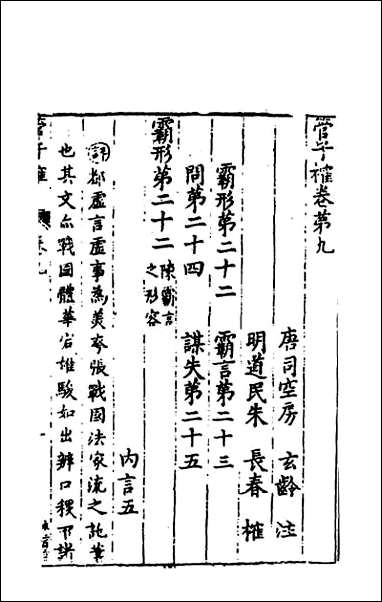 管子榷卷第九
唐司空房 玄齡 注
明道民朱 長春 榷
霸形第二十二 霸言第二十三
問第二十四 謀失第二十五
霸形第二十二 陳霸言之形容 內言五
評都虛言虛事為美夸張戰國法家流之託筆
也其文亦戰國體華宕雄駿如出辨口稷下諸
管子榷 卷九